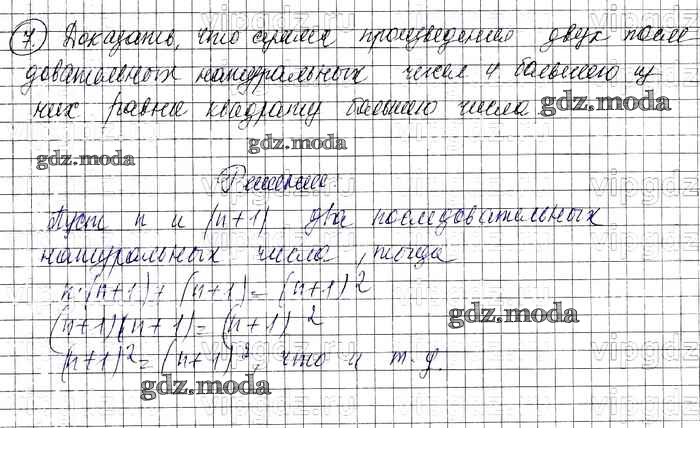 7. Доказать, что сумма произведения двух после
довательных натуральных чисел и большего из
них равна квадрату большего числа gdz.moda
gdz.moda gdz.moda
Решение
Пуст n и (n+1) два последовательных
натуральных числа, тогда
n·(n+1)+(n+1)=(n+1)²
gdz.moda
(n+1)(n+1)=(n+1)²
(n+1)²=(n+1)², что и т.д.
gdz.moda